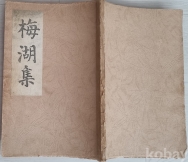 梅湖集
kobay